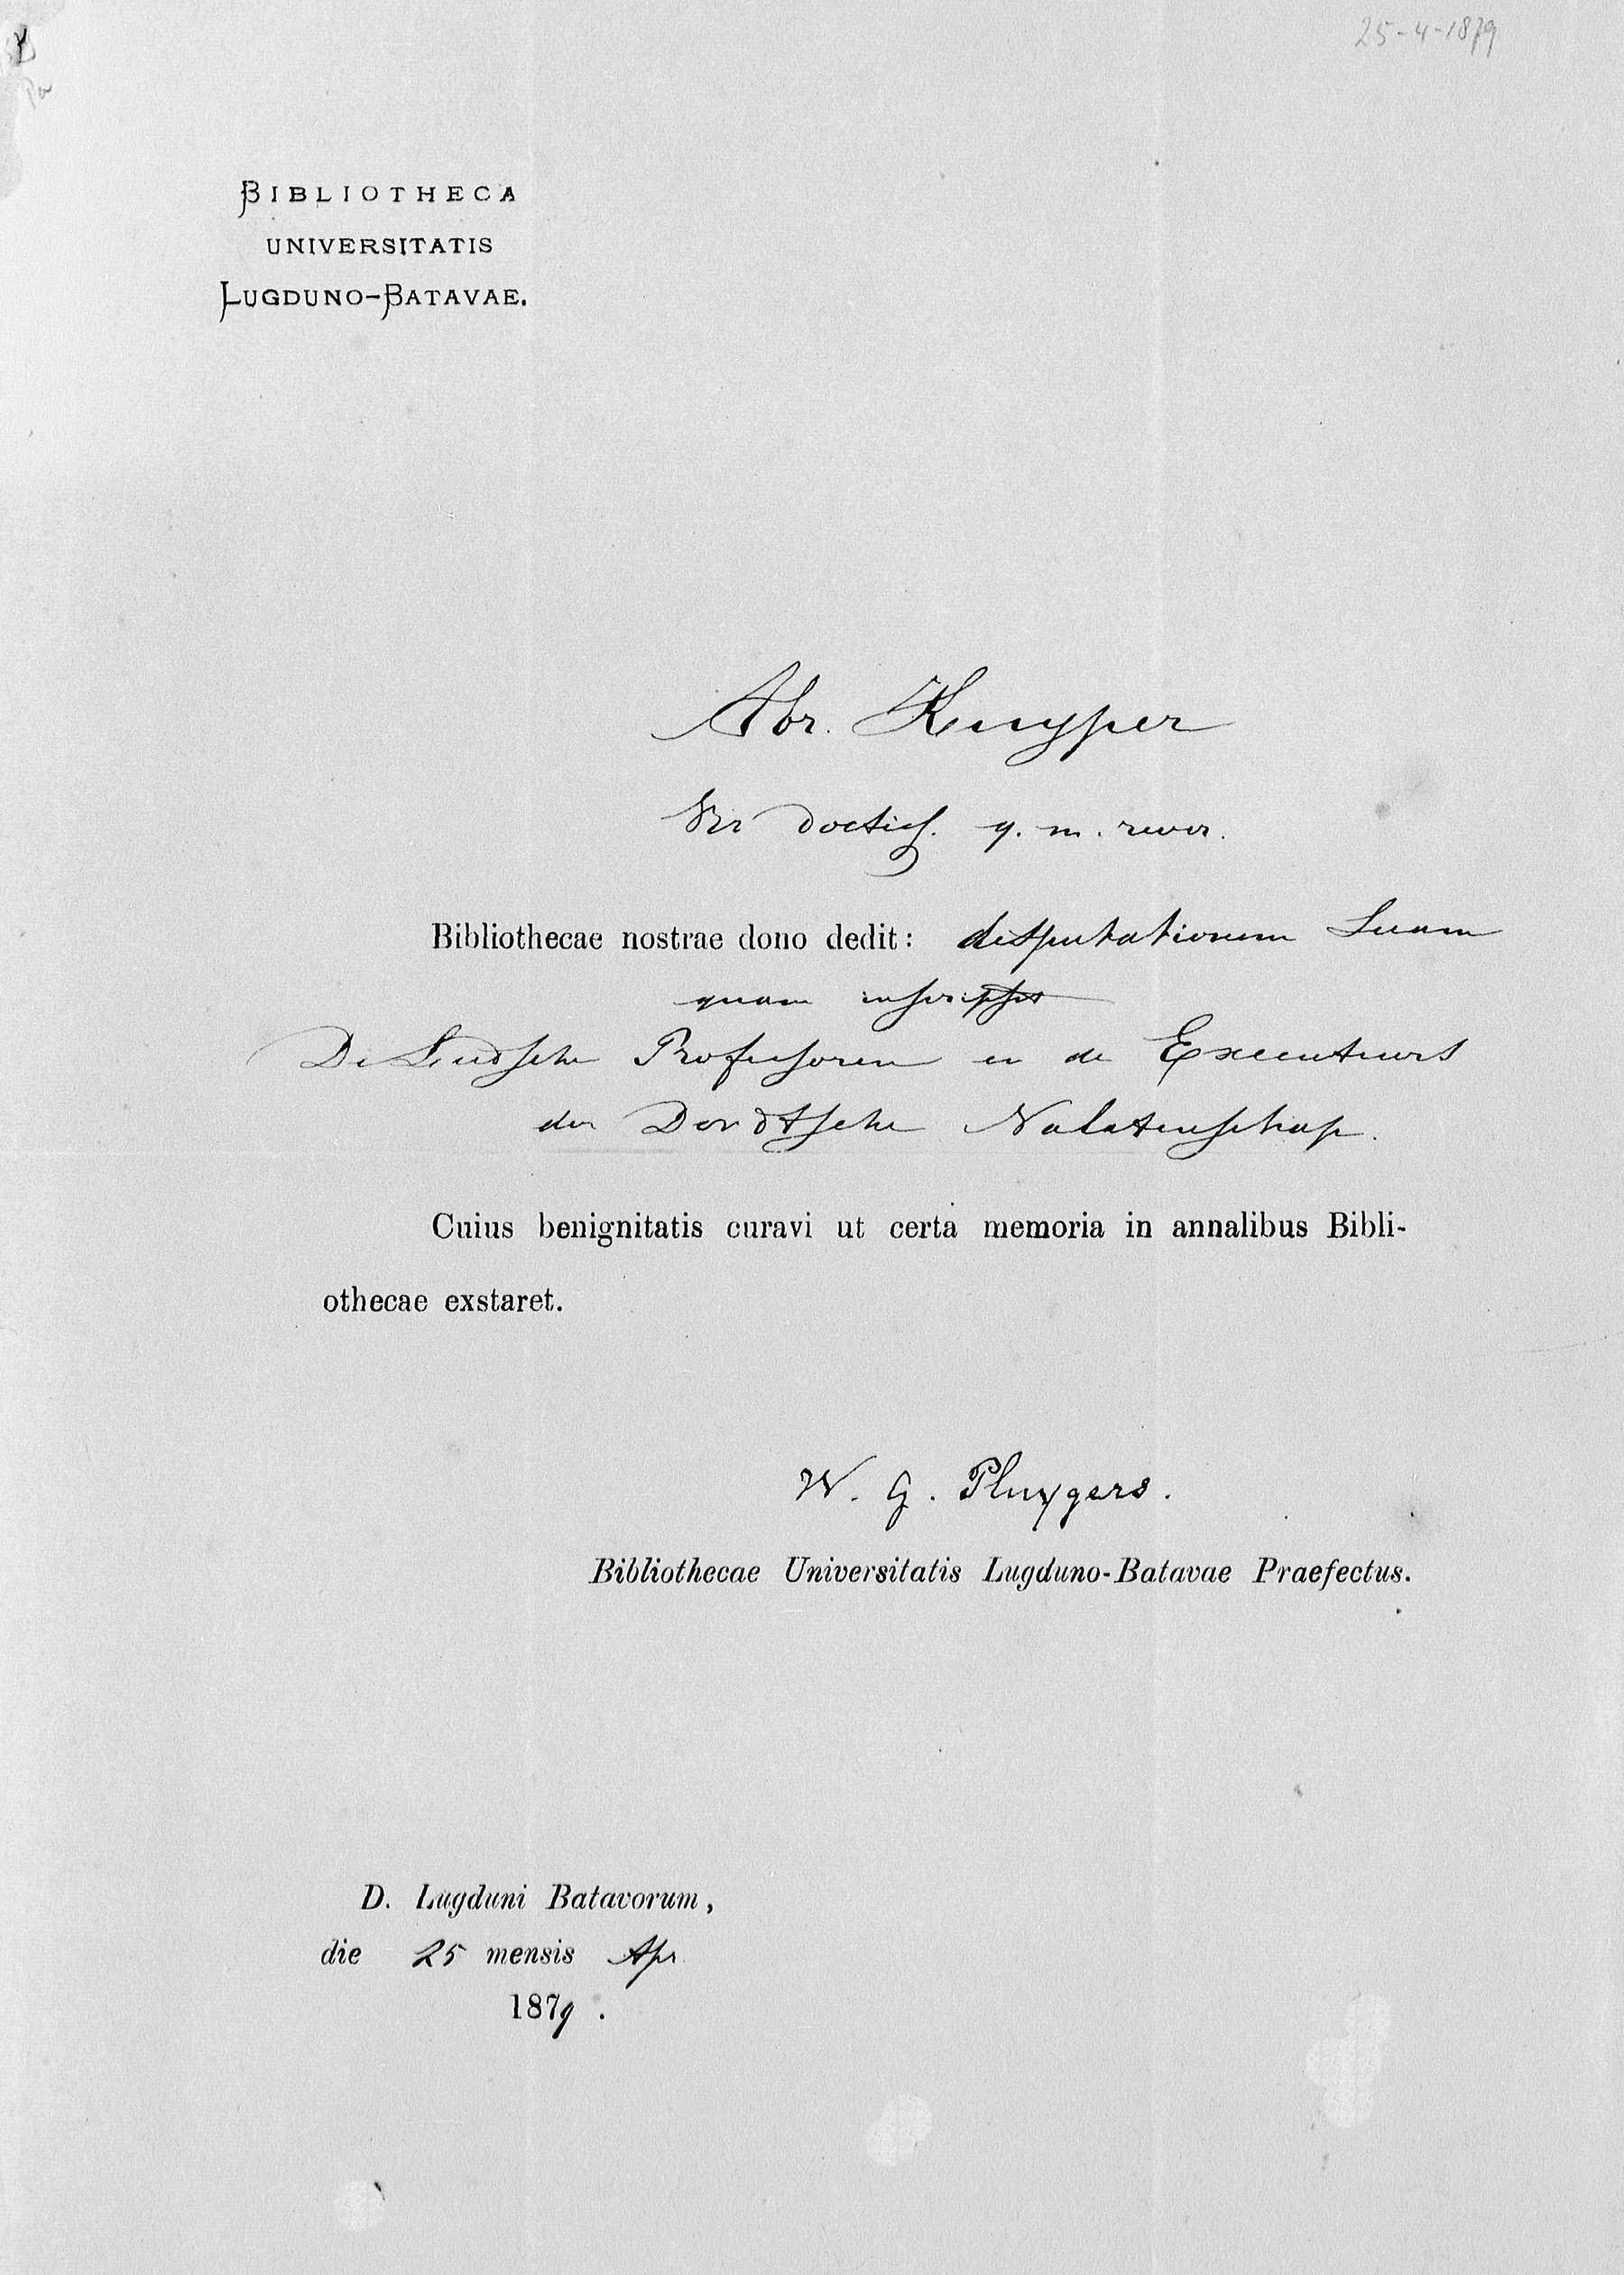 25-4-1879
BIBLIOTHECA
UNIVERSITATIS
LUGDUNO-BATAVAE.
Abr. Kuyper
Vir doctiss. q. m. rever.
Bibliothecae nostrae dono dedit: disputationem suam
quam inscripsit
De Leidsche Professoren en de Executeurs
der Dordtsche Nalatenschap.
Cuius benignitatis curavi ut certa memoria in annalibus Bibli-
othecae exstaret.
W. G. Pluygers.
Bibliothecae Universitatis Lugduno-Batavae Praefectus.
D. Lugduni Batavorum,
die 25 mensis Apr
1879.